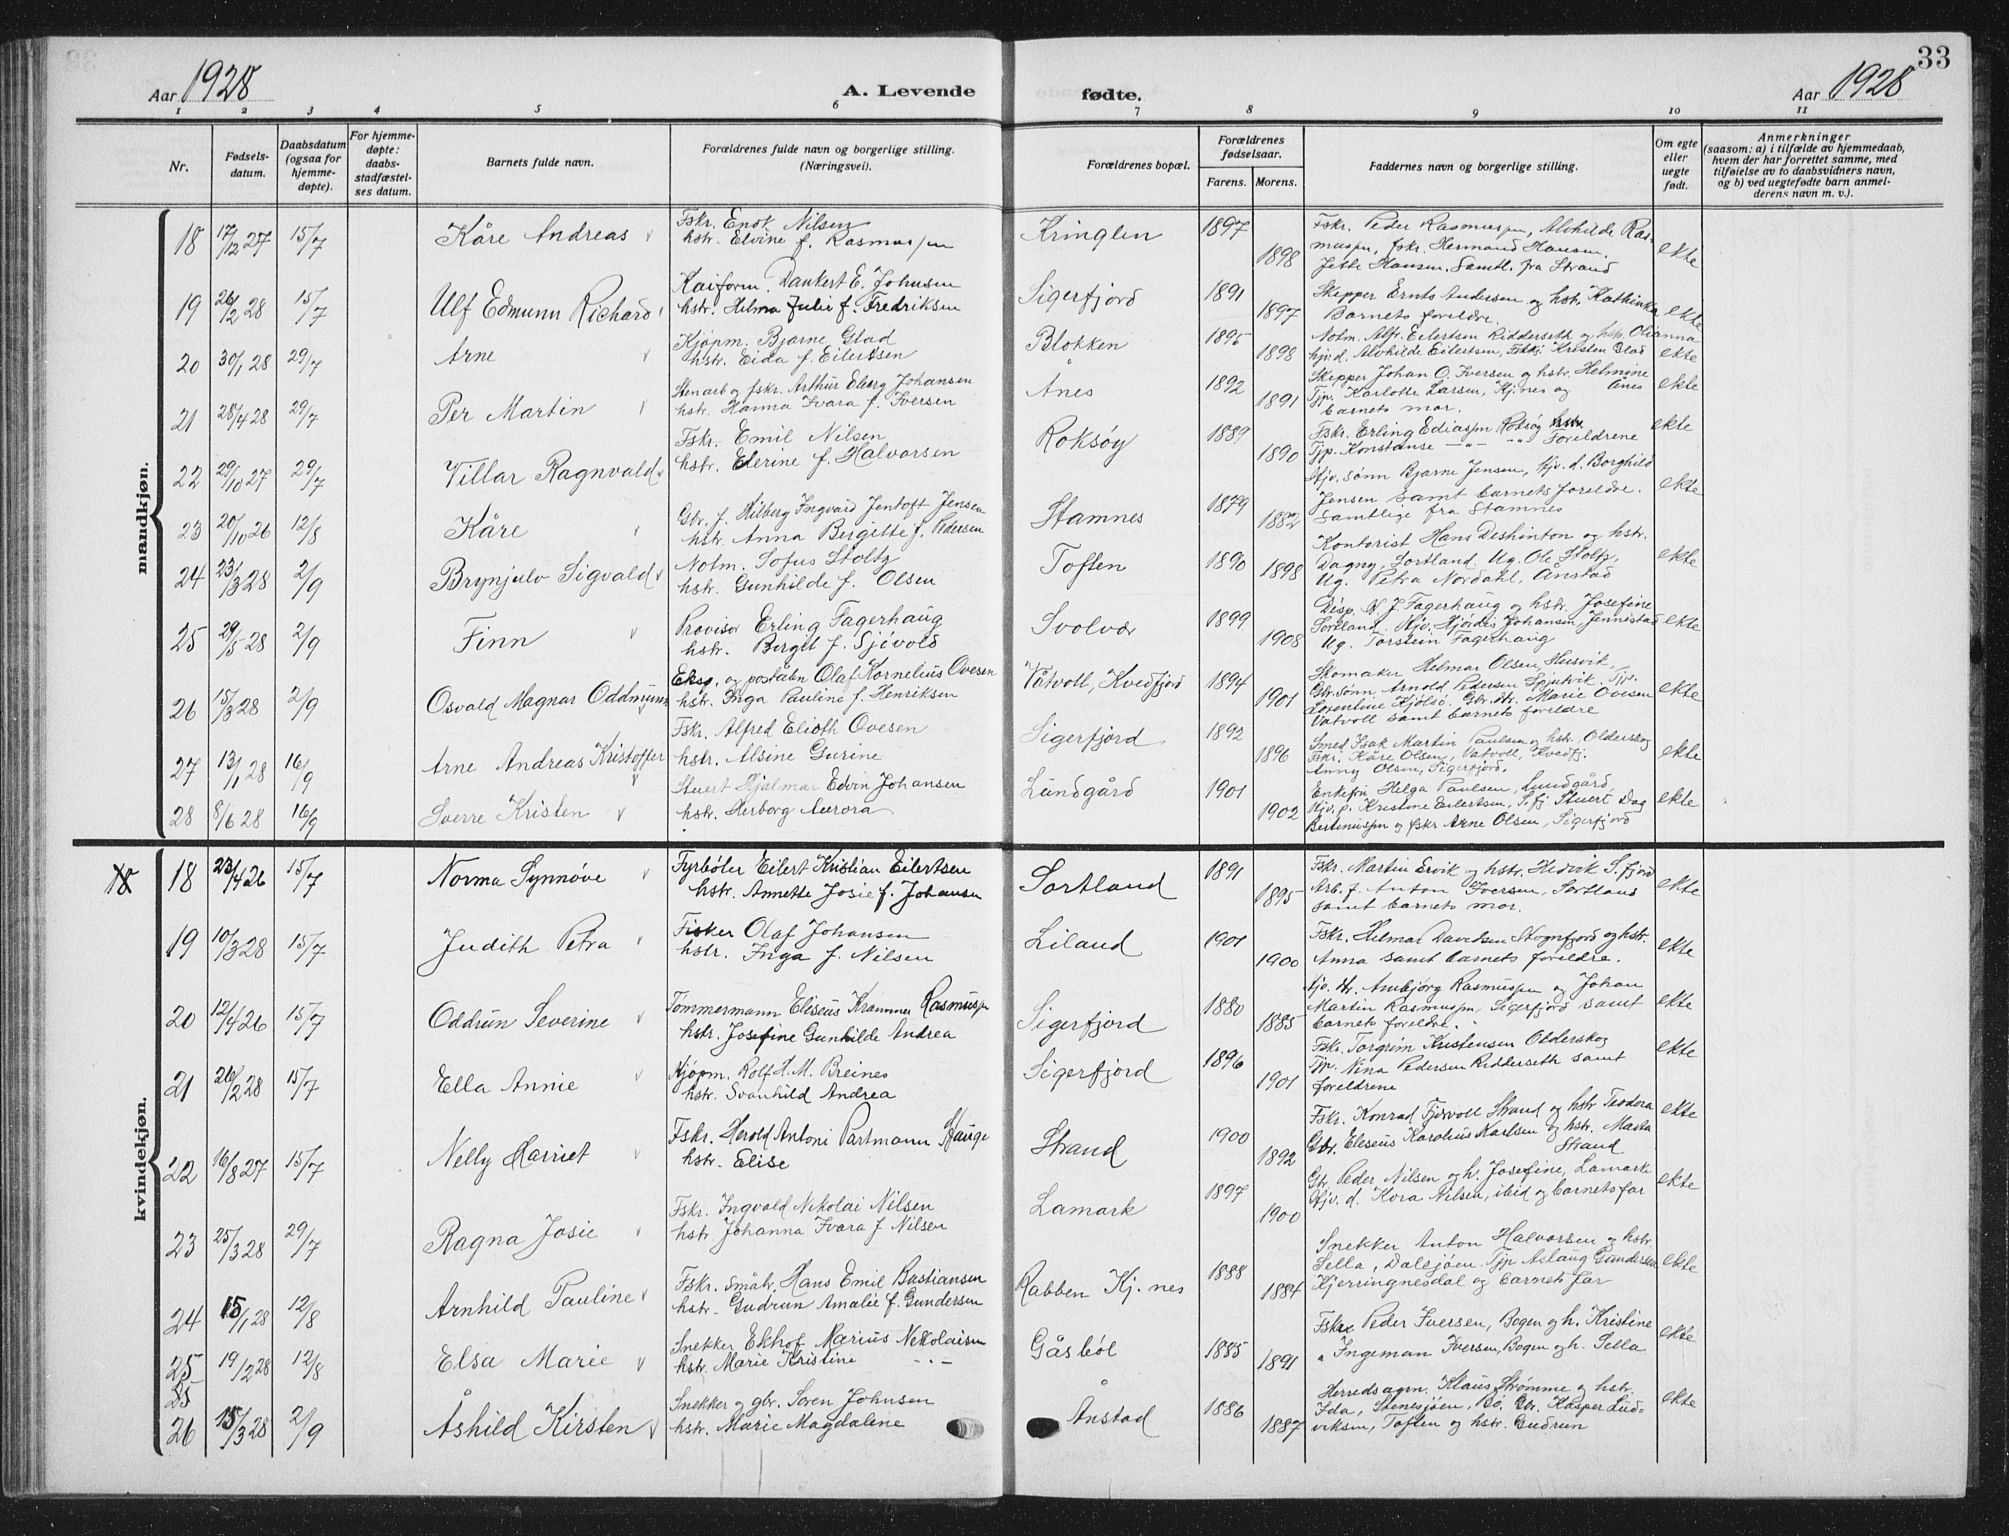 33
Aar 1928 A. Levende fødte. Aar 1928
1 2 3 4 5 6 7 8 9 10 11
Nr.
Fødsels-
datum.
Daabsdatum
(ogsaa for
hjemme-
døpte).
For hjemme-
døpte:
daabs-
stadfæstel-
ses datum.
Barnets fulde navn.
Forældrenes fulde navn og borgerlige stilling.
(Næringsvei).
Forældrenes bopæl.
Forældrenes
fødselsaar.
Farens. Morens.
Faddernes navn og borgerlige stilling.
Om egte
eller
uegte
født.
Anmerkninger
(saasom: a) i tilfælde av hjemmedaab,
hvem der har forrettet samme, med
tilføielse av to daabsvidners navn,
og b) ved uegtefødte barn anmel-
derens navn m. v.).
mandkjøn.
18 17/12 27 15/7 Kåre Andreas
Fskr. Enok Nilsen
hstr. Elvine f. Rasmussen
Kringlen 1897 1898
Fskr. Peder Rasmussen, Alvhilde Ras-
mussen, fskr. Hermand Hansen,
Jetti Hansen. Samtl. fra Strand
ekte
19 26/2 28 15/7 Ulf Edmunn Richard
Kaiform. Dankert E. Johnsen
hstr. Helma Julie f. Fredriksen
Sigerfjord 1891 1897
Skipper Ernts Andersen og hstr. Kathinka
Barnets foreldre.
ekte
20 30/1 28 29/7 Arne
Kjøpm. Bjarne Glad
hstr. Eida f. Eilertsen
Blokken 1895 1898
Notm. Alfr. Eilertsen Ridderseth og hstr. Olianna
hjv d. Alvhilde Eilertsen, Fskr. Kristen Glad
ekte
21 28/4 28 29/7 Per Martin
Stenarb og fskr. Arthur Eberg Johansen
hstr. Hanna Ivara f. Iversen
Ånes 1892 1891
Skipper Johan O. Iversen og hstr. Helmine
Tjp. Karlotte Larsen, Kj.nes og Ånes
barnets mor.
ekte
22 29/10 27 29/7 Villar Ragnvald
Fskr. Emil Nilsen
hstr. Elerine f. Halvorsen
Roksøy 1889 1890
Fskr. Erling Ediassen Roksøy
Tjp. Konstanse —"— " Foreldrene
ekte
23 20/10 26 12/8 Kåre
Gbr. f. Hilberg Ingvard Jentoft Jensen
hstr. Anna Birgitte f. Pedersen
Stamnes 1879 1882
Hjv. sønn Bjarne Jensen, Hjv. d. Borghild
Jensen samt barnets foreldre.
Samtlige fra Stamnes
ekte
24 23/3 28 2/9 Brynjulv Sigvald
Notm. Sofus Stoltz
hstr. Gunhilde f. Olsen
Toften 1890 1898
Kontorist Hans Deshinton og hstr.
Dagny, Sortland. Ug. Ole Stoltz,
Ug. Petra Nordahl, Ånstad
ekte
25 29/5 28 2/9 Finn
Provisor Erling Fagerhaug
hstr. Bergit f. Sjøvold
Svolvær 1899 1908
Disp. N. J. Fagerhaug og hstr. Josefine
Sortland. Hjv. Hjørdis Johansen Jennistad
Ug. Torstein Fagerhaug
ekte
26 15/3 28 2/9 Osvald Magnar Oddmunn
Eksp. og poståbn Olaf Kornelius Ovesen
hstr. Inga Pauline f. Henriksen
Våtvoll, Kvedfjord 1894 1901
Skomaker Helmar Olsen, Husvik,
Gbr.sønn. Arnold Pedersen Spjutvik. Tjv.
Lorentine Kjølsø. Gbr.dtr. Marie Ovesen
Vatvoll samt barnets foreldre
ekte
27 13/1 28 16/9 Arne Andreas Kristoffer
Fskr. Alfred Elioth Ovesen
hstr. Alsine Gurine
Sigerfjord 1892 1896
Smed Isak Martin Paulsen og hstr. Olderskog
Fskr. Kåre Olsen, Vatvoll, Kvedfj.
Anny Olsen, Sigerfjord.
ekte
28 8/6 28 16/9 Sverre Kristen
Stuert Hjalmar Edvin Johansen
hstr. Herborg Aurora
Lundgård 1901 1902
Enkefru Helga Paulsen, Lundgård,
Hjv. p. Kristine Eilertsen, S.fj. Stuert Dag
Bertinussen og fskr Arne Olsen, Sigerfjord
ekte
kvindekjøn.
18 18 23/4 26 15/7 Norma Synnøve
Fyrbøter Eilert Kristian Eilertsen
hstr. Annette Josie f. Johansen
Sortland 1891 1895
Fskr. Martin Ervik og hstr. Hedvik S.fjord
Arb. f. Anton Iversen, Sortland
samt barnets mor.
ekte
19 10/3 28 15/7 Judith Petra
Fisker Olaf Johansen
hstr. Inga f. Nilsen
Liland 1901 1900
Fskr. Hilmar Davidsen Stognfjord og hstr.
Anna samt barnets foreldre.
ekte
20 12/4 26 15/7 Oddrun Severine
Tømmermann Eliseus Krammer Rasmussen
hstr. Josefine Gunhilde Andrea
Sigerfjord 1880 1885
Hjv. dtr. Annbjørg Rasmussen og Johan
Martin Rasmussen, Sigerfjord samt
barnets foreldre.
ekte
21 26/2 28 15/7 Ella Annie
Kjøpm. Rolf H. M. Breines
hstr. Svanhild Andrea
Sigerfjord 1896 1901
Fskr. Torgrim Kristensen Olderskog
Tjp. Nina Pedersen Ridderseth samt
foreldrene
ekte
22 16/8 27 15/7 Nelly Harriet
Fskr. Herold Antoni Partmann Hauge
hstr. Elise
Strand 1900 1892
Fskr. Konrad Fjærvoll Strand og hstr Teodora
Gbr. Eleseus Karolius Karlsen og hstr. Marta
Strand
ekte
23 25/3 28 29/7 Ragna Josie
Fskr. Ingvald Nikolai Nilsen
hstr Johanna Ivara f Nilsen
Lamark 1897 1900
Gbr. Peder Nilsen og h. Josefine, Lamark
Hjv. d. Kora Nilsen, ibid og barnets far
ekte
24 15/1 28 12/8 Arnhild Pauline
Fskr. småbr. Hans Emil Bastiansen
hstr. Gudrun Amalie f. Gundersen
Rabben Kj.nes 1888 1884
Snekker Anton Halvorsen og hstr.
Sella, Dalsjøen. Tjp Aslaug Gundersen
Kjerringnesdal og barnets far
ekte
25 19/2 28 12/8 Elsa Marie
Snekker Ekhof Marius Nikolaisen
hstr. Marie Kristine —"—
Gåsbøl 1885 1891
Fskr Peder Iversen, Bogen og h. Kristine
" Ingeman Iversen, Bogen og h. Sella
ekte
25
26 15/3 28 2/9 Åshild Kirsten
Snekker og gbr. Soren Johnsen
hstr. Marie Magdalene
Ånstad 1886 1887
Herredsagrn. Klaus Strømme og hstr.
Ida, Stenesjøen, Bø, Gbr. Kasper Lud-
viksen, Toften og hstr. Gudrun
ekte